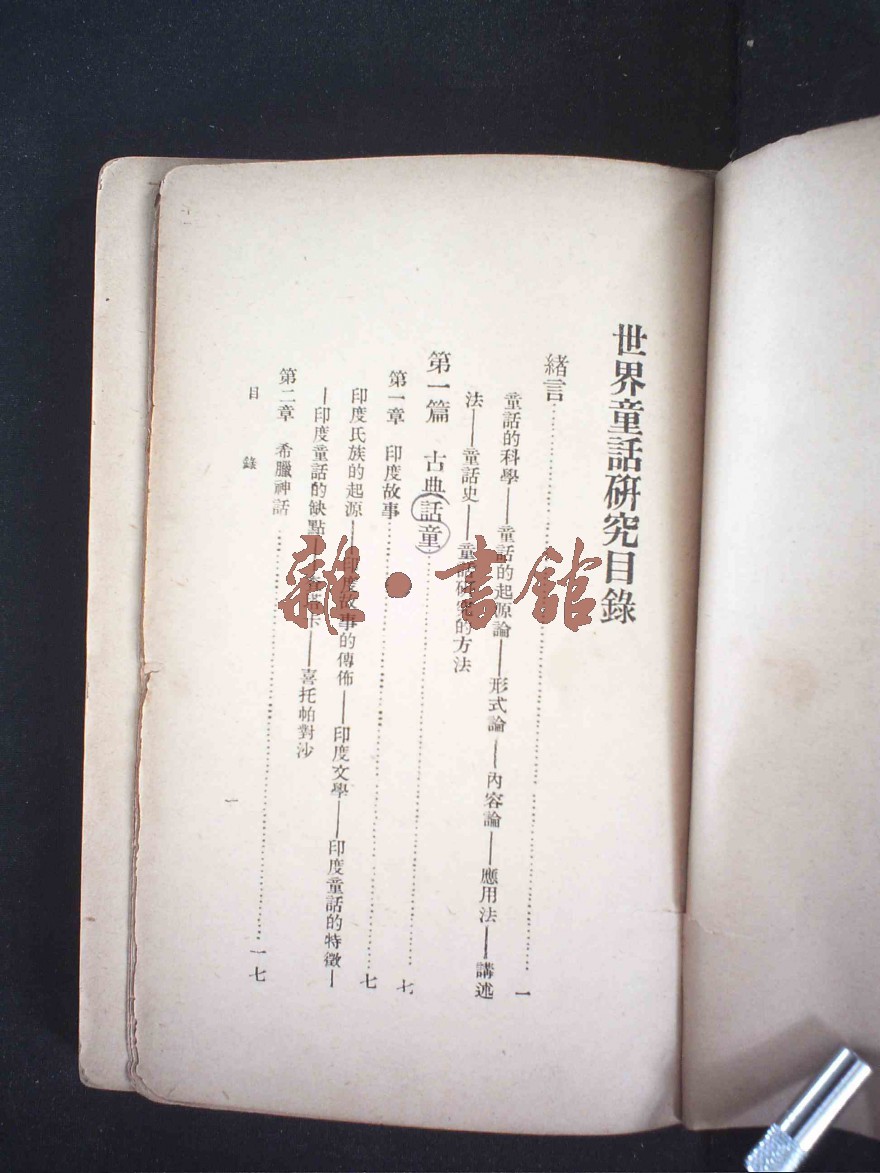 世界童話研究目錄
緒言⋯⋯⋯⋯⋯⋯⋯⋯⋯⋯一
童話的科學——童話的起源論——形式論——內容論——應用法——講述
法——童話史——童話研究的方法
第一篇 古典(話童)⋯⋯⋯⋯⋯⋯⋯⋯⋯⋯七
第一章 印度故事⋯⋯⋯⋯⋯⋯⋯⋯⋯⋯七
印度民族的起源——印度故事的傳佈——印度文學——印度童話的特徵—
—印度童話的缺點——塔卡——喜托帕對沙
第二章 希臘神話⋯⋯⋯⋯⋯⋯⋯⋯⋯⋯一七
目錄
一
雜·書館